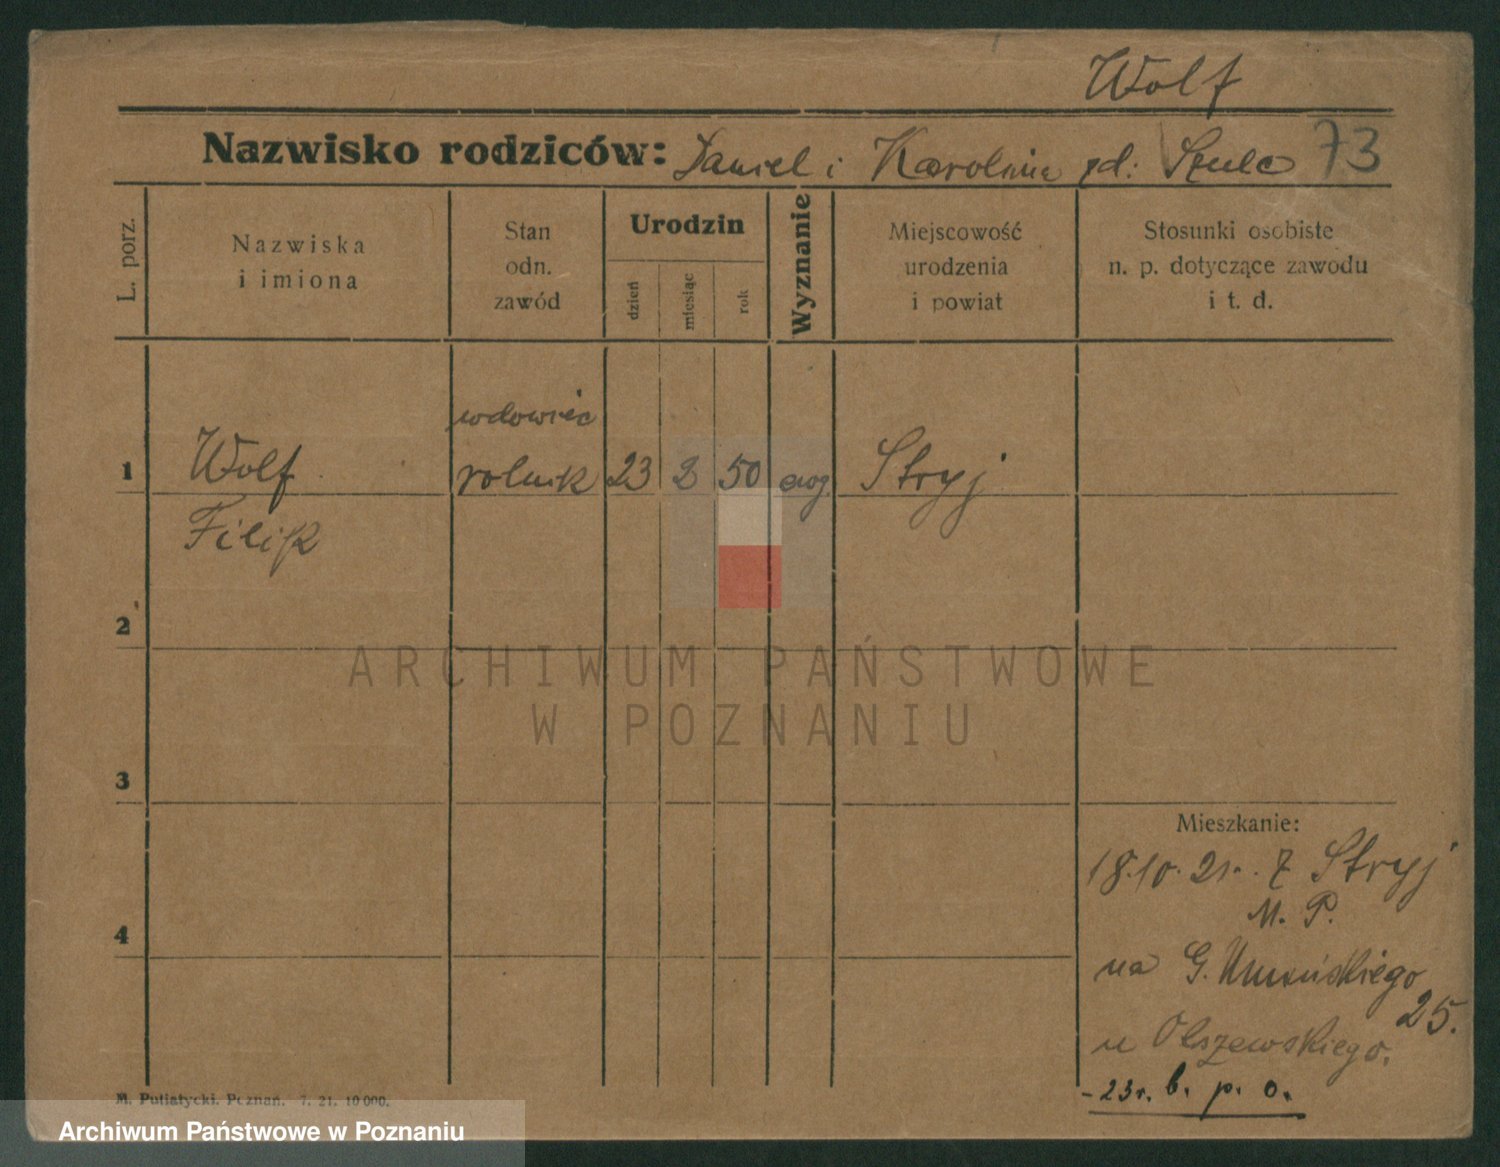 Wolf
Nazwisko rodziców: Daniel i Karolina zd: Szulc 73
L. porz.
Nazwiska
i imiona
Stan
odn.
zawód
Urodzin
dzień
miesiąc
rok
Wyznanie
Miejscowość
urodzenia
i powiat
Stosunki osobiste
n. p. dotyczące zawodu
i t. d.
wdowiec
1 Wolf rolnik 23 2 50 ewg Stryj
Filip
2
3
4
ARCHIWUM PAŃSTWOWE
W POZNANIU
Mieszkanie:
18.10.21. z Stryj
M. P.
na G. Umińskiego
25.
u Olszewskiego.
-23r. b. p. o.
M. Putiatycki. Poznań. 7. 21. 10000.
Archiwum Państwowe w Poznaniu